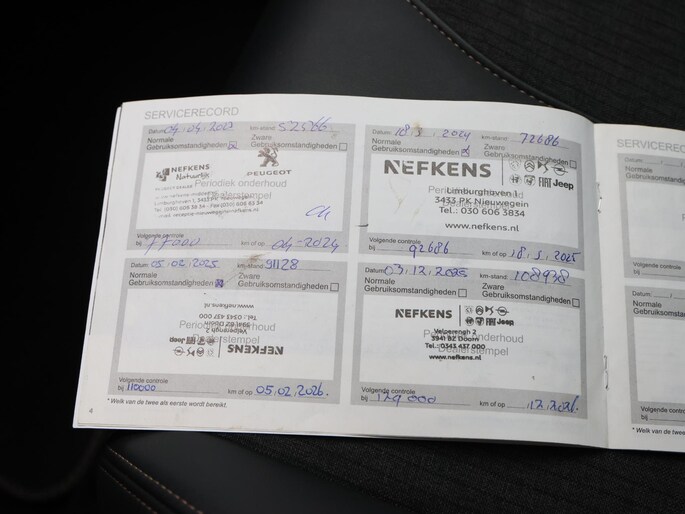 SERVICERECORD
Datum 04.04.2023 km-stand: 52566
Normale Zware
Gebruiksomstandigheden Gebruiksomstandigheden
NEFKENS
Natuurlijk
PEUGEOT
Periodiek onderhoud
Dealerstempel
3433 PK Nieuwegein
Volgende controle
bij 77000 km of op 04-2024
Datum: 18.5.2024 km-stand: 72686
Normale Zware
Gebruiksomstandigheden Gebruiksomstandigheden
NEFKENS
FIAT Jeep
Limburghaven 1
3433 PK Nieuwegein
Tel.: 030 606 3834
www.nefkens.nl
Volgende controle
bij 92686 km of op 18.5.2025
Datum: 05.02.2025 km-stand: 91128
Normale Zware
Gebruiksomstandigheden Gebruiksomstandigheden
www.nefkens.nl
Tel.: 0343 437 000
3941 BZ Doorn
Velperengh 2
Periodiek onderhoud
Dealerstempel
NEFKENS
Jeep
Volgende controle
bij 110000 km of op 05.02.2026.
Datum: 03.12.2025 km-stand: 108938
Normale Zware
Gebruiksomstandigheden Gebruiksomstandigheden
NEFKENS
Jeep
Velperengh 2
3941 BZ Doorn
Tel.: 0343 437 000
www.nefkens.nl
Periodiek onderhoud
Dealerstempel
Volgende controle
bij 129000 km of op 12.2026.
* Welk van de twee als eerste wordt bereikt.
4
SERVICEREC
Datum:
Normale
Gebruiksomst
Volgende controle
bij
Datum:
Normale
Gebruiksomst
Volgende controle
bij
* Welk van de twee